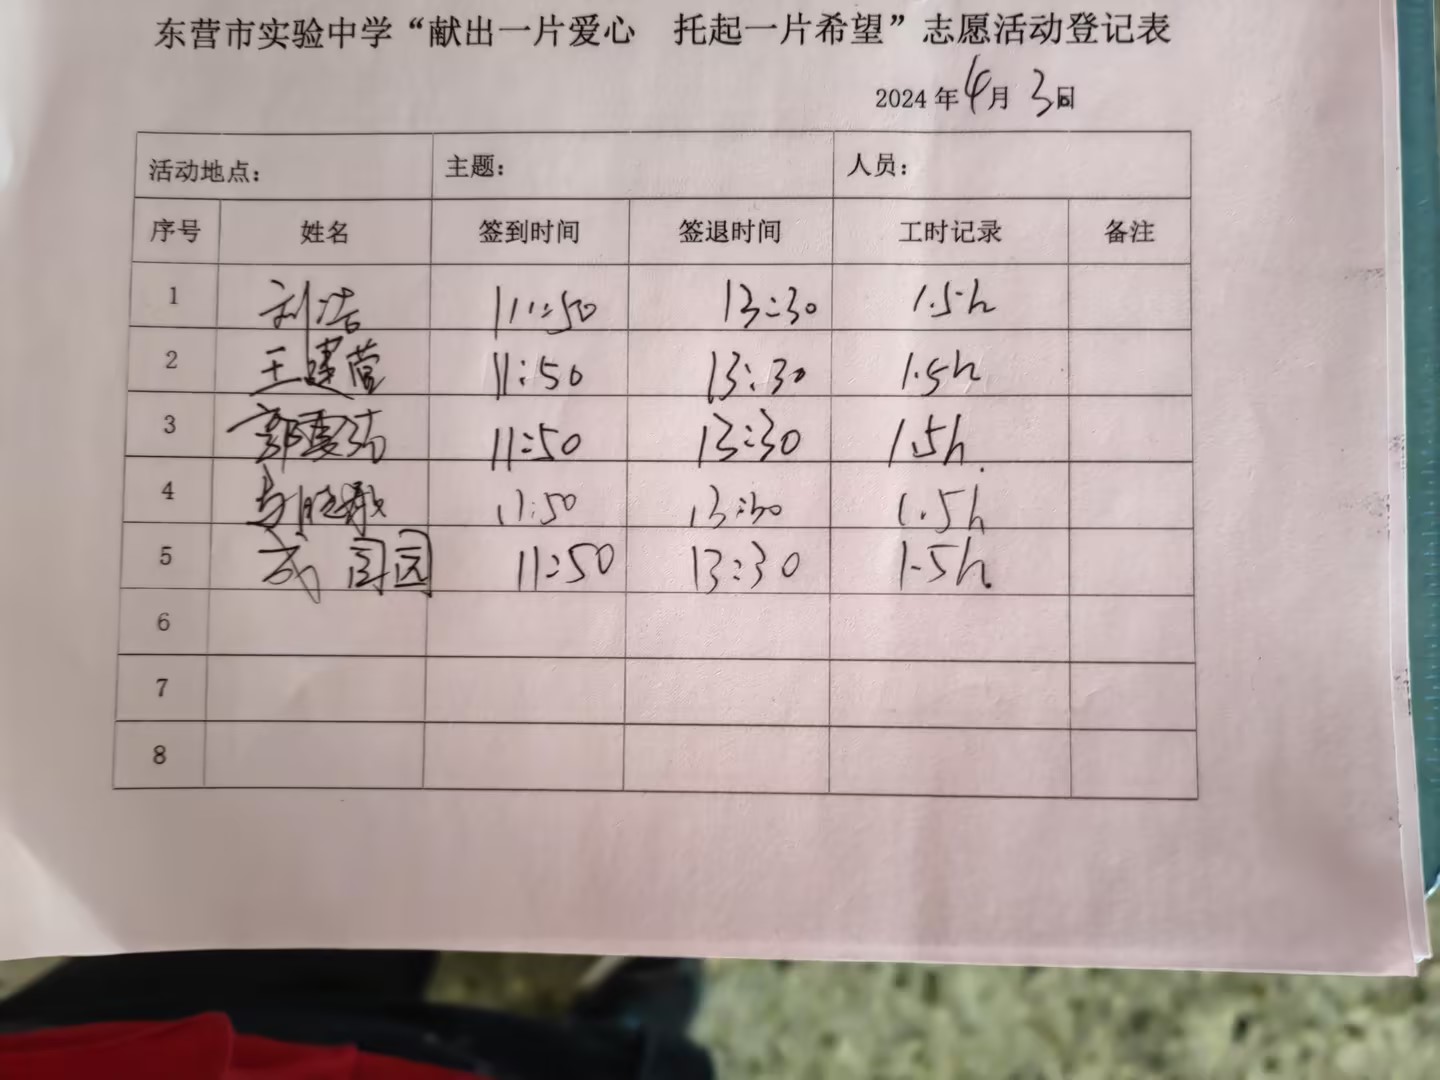 东营市实验中学“献出一片爱心 托起一片希望”志愿活动登记表
2024年4月3日
活动地点: 主题: 人员:
序号 姓名 签到时间 签退时间 工时记录 备注
1 刘洁 11:50 13:30 1.5h
2 王建营 11:50 13:30 1.5h
3 11:50 13:30 1.5h
4 11:50 13:30 1.5h
5 11:50 13:30 1.5h
6
7
8